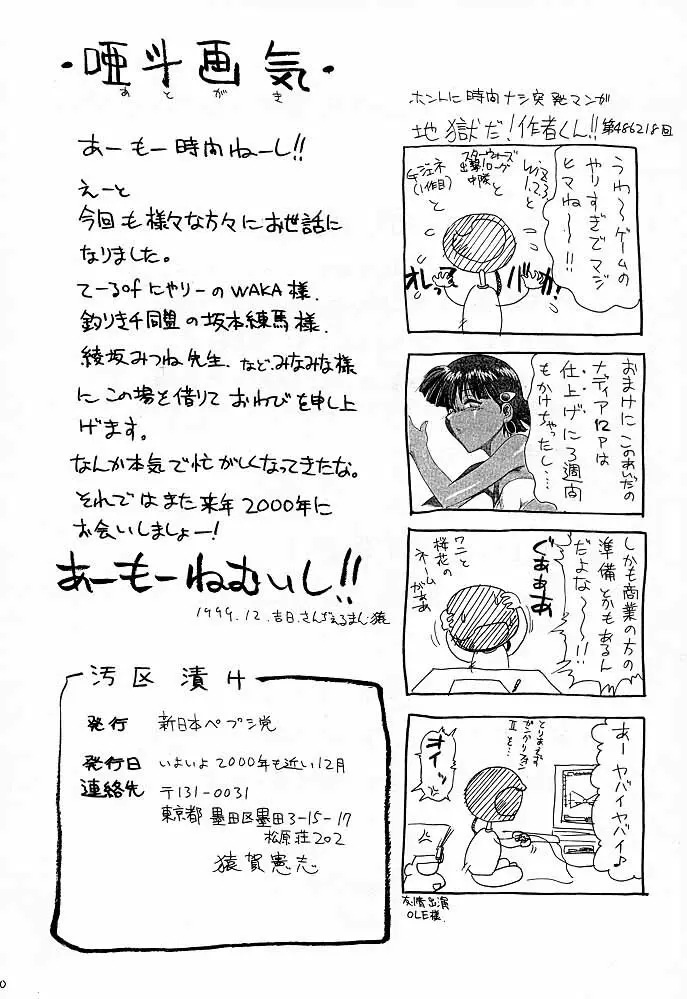 ・唖斗画気・
あとがき
あーもー時間ねーし!!
えーと
今回も様々な方々にお世話に
なりました。
てーるofにゃりーのWAKA様.
釣りキチ同盟の坂本練馬様.
綾坂みつね先生、などみなみな様
にこの場を借りておわびを申し上
げます。
なんか本気で忙がしくなってきたな。
それではまた来年2000年に
お会いしましょー!
あーもーねむいし!!
1999.12.吉日.さんぢぇるまん猿
汚区漬け
発行 新日本ペプシ党
発行日 いよいよ2000年も近い12月
連絡先 〒131-0031
東京都 墨田区墨田3-15-17
松原荘202
猿賀憲志
ホントに時間ナシ突発マンガ
地獄だ!作者くん!! 第486218回
うわ〜ゲームの
やりすぎでマジ
ヒマね〜〜!!
Wiz
1.2.3
と
スターウォーズ
出撃!ローグ
中隊
と
(1作目)
と
オレって
バカ?
おまけにこのあいだの
ナディア12Pは
仕上げに3週間
もかけちゃったし…
しかも商業の方の
準備とかもあるん
だよな〜〜!!
ぐああぁ
ワニと
桜花の
ネームがああ
あーヤバイヤバイ♪
とりあえず
IIを…
オイッ
友情出演
OLE様.